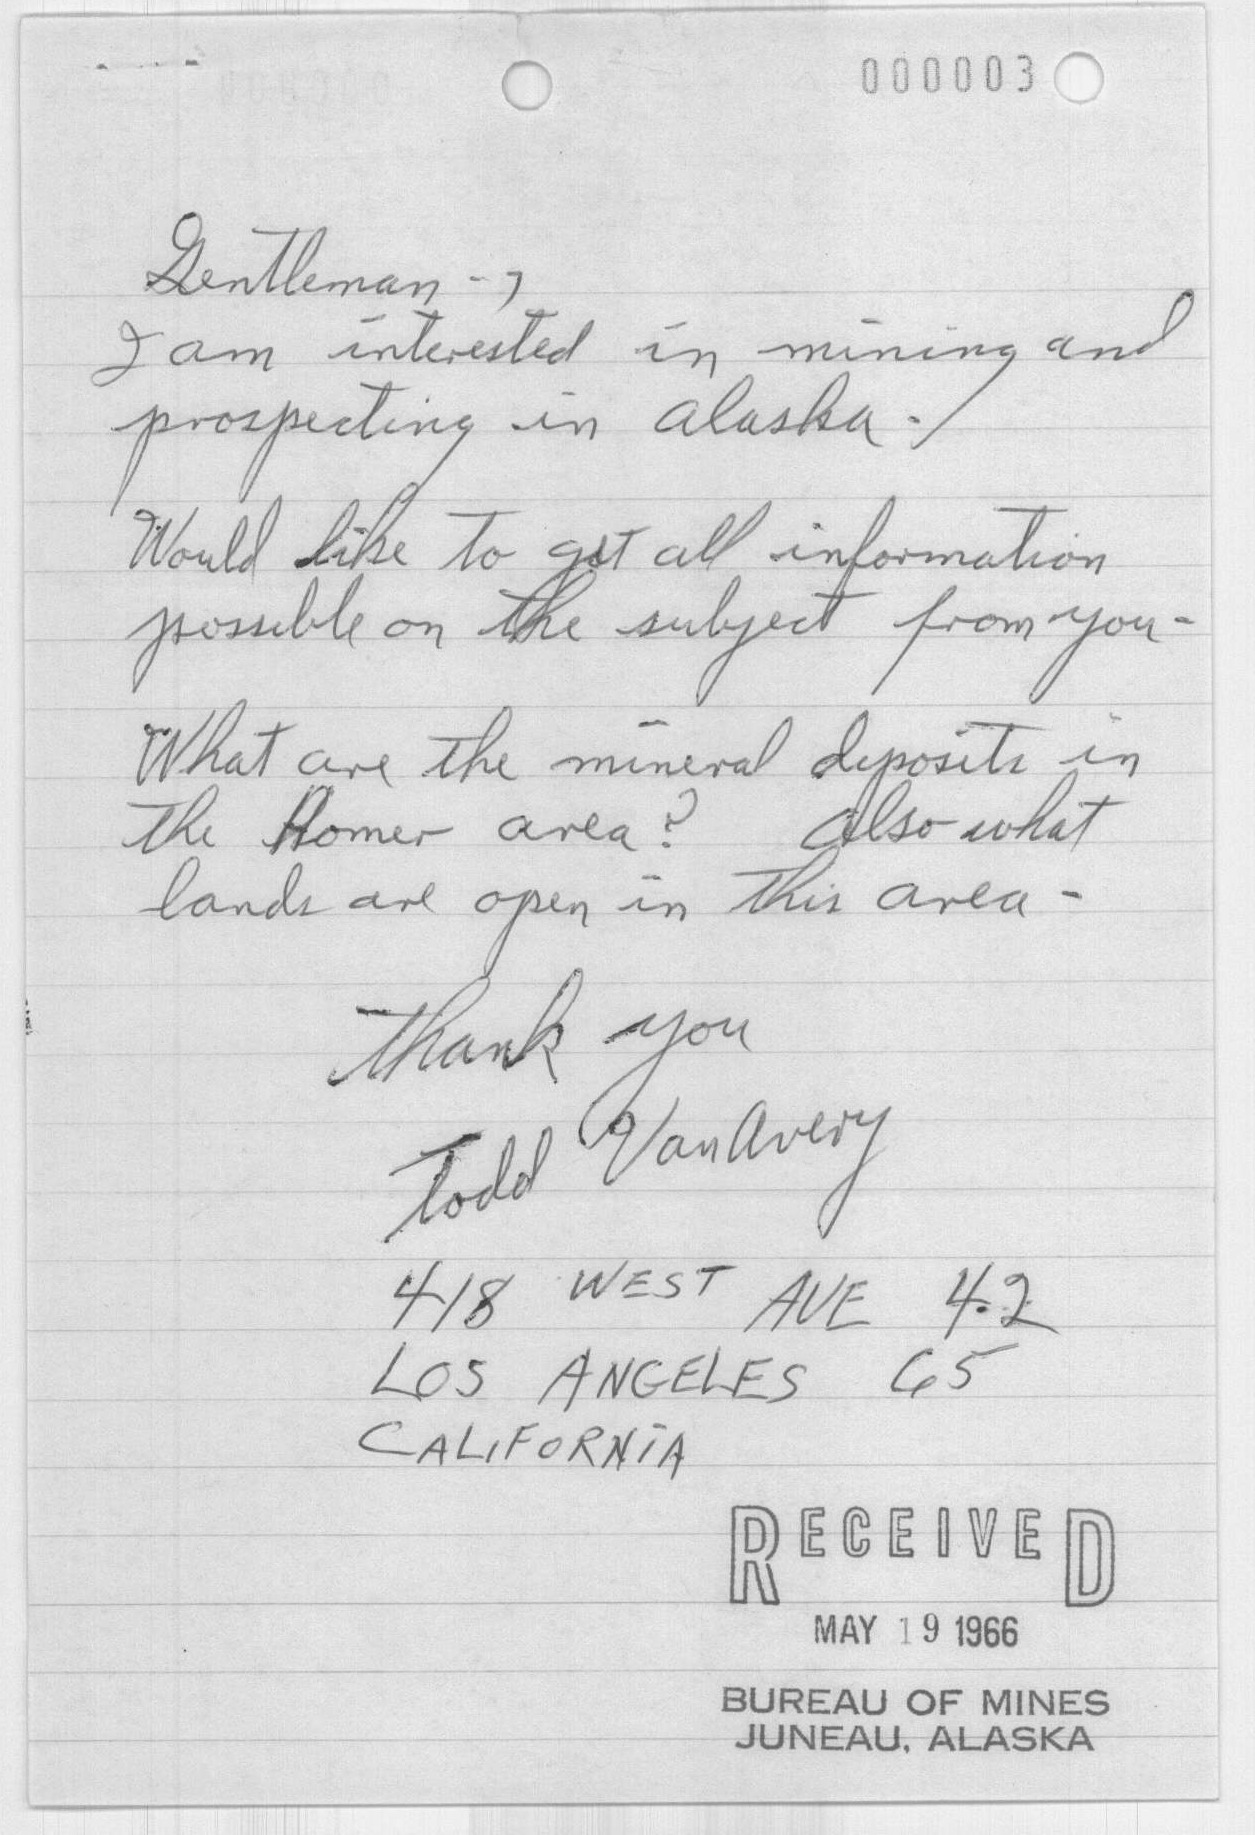 000003
Gentleman -,
I am interested in mining and
prospecting in Alaska -
Would like to get all information
possible on the subject from you -
What are the mineral deposits in
the Homer area? Also what
lands are open in this area -
Thank you
Todd VanAvery
418 WEST AVE 42
LOS ANGELES 65
CALIFORNIA
RECEIVED
MAY 19 1966
BUREAU OF MINES
JUNEAU, ALASKA